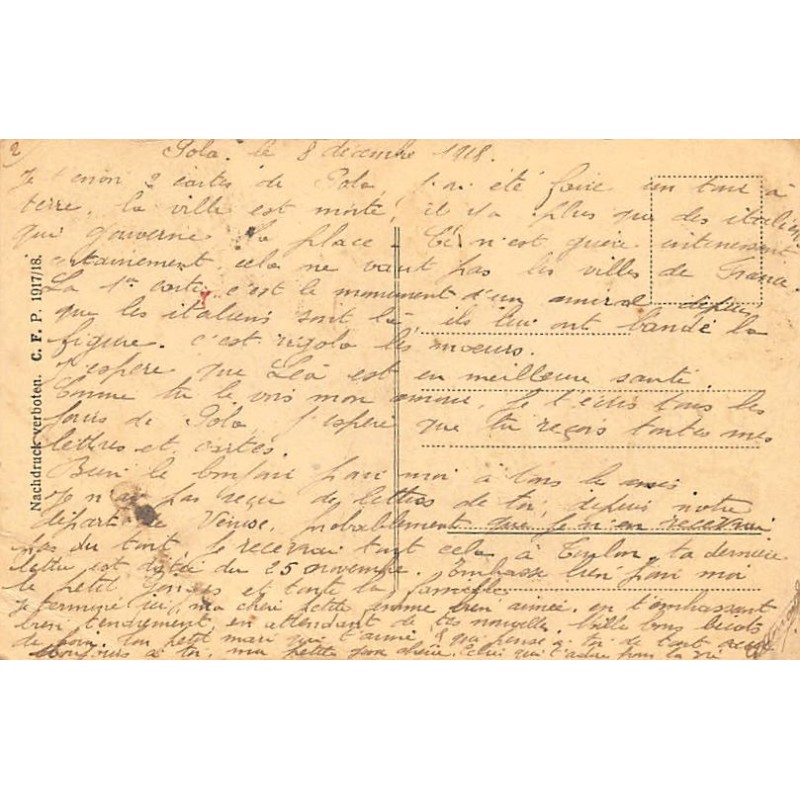 2
Pola. le 8 décembre 1918.
Je t'envoi 2 cartes de Pola, j'ai été faire un tour à
terre. la ville est morte, il n'y a plus que des italiens
qui gouverne la place. Ce n'est guère intéressant
certainement cela ne vaut pas les villes de France.
La 1re carte, c'est le monument d'un amiral depuis
que les italiens sont là, ils lui ont bandé la
figure. c'est rigolo les moeurs.
J'espère que Léa est en meilleure santé.
Comme tu le vois mon amour, Je t'écris tous les
jours de Pola, J'espère que tu reçois toutes mes
lettres et cartes.
Bien le bonjour pour moi à tous les amis
Je n'ai pas reçu de lettres de toi, depuis notre
départ de Venise, probablement que je n'en recevrai
pas du tout, je recevrai tout cela à Toulon, ta dernière
lettre est datée du 25 novembre. Embrasse bien pour moi
le petit et toute la famille
Je termine ici, ma chère petite femme bien aimée, en t'embrassant
bien tendrement, en attendant de tes nouvelles. Mille bons
de loin. Ton petit mari qui t'aime, & qui pense à toi de tout coeur
toujours à toi, ma petite chérie. Celui qui t'adore pour la vie
Nachdruck verboten. C. F. P. 1917/18.